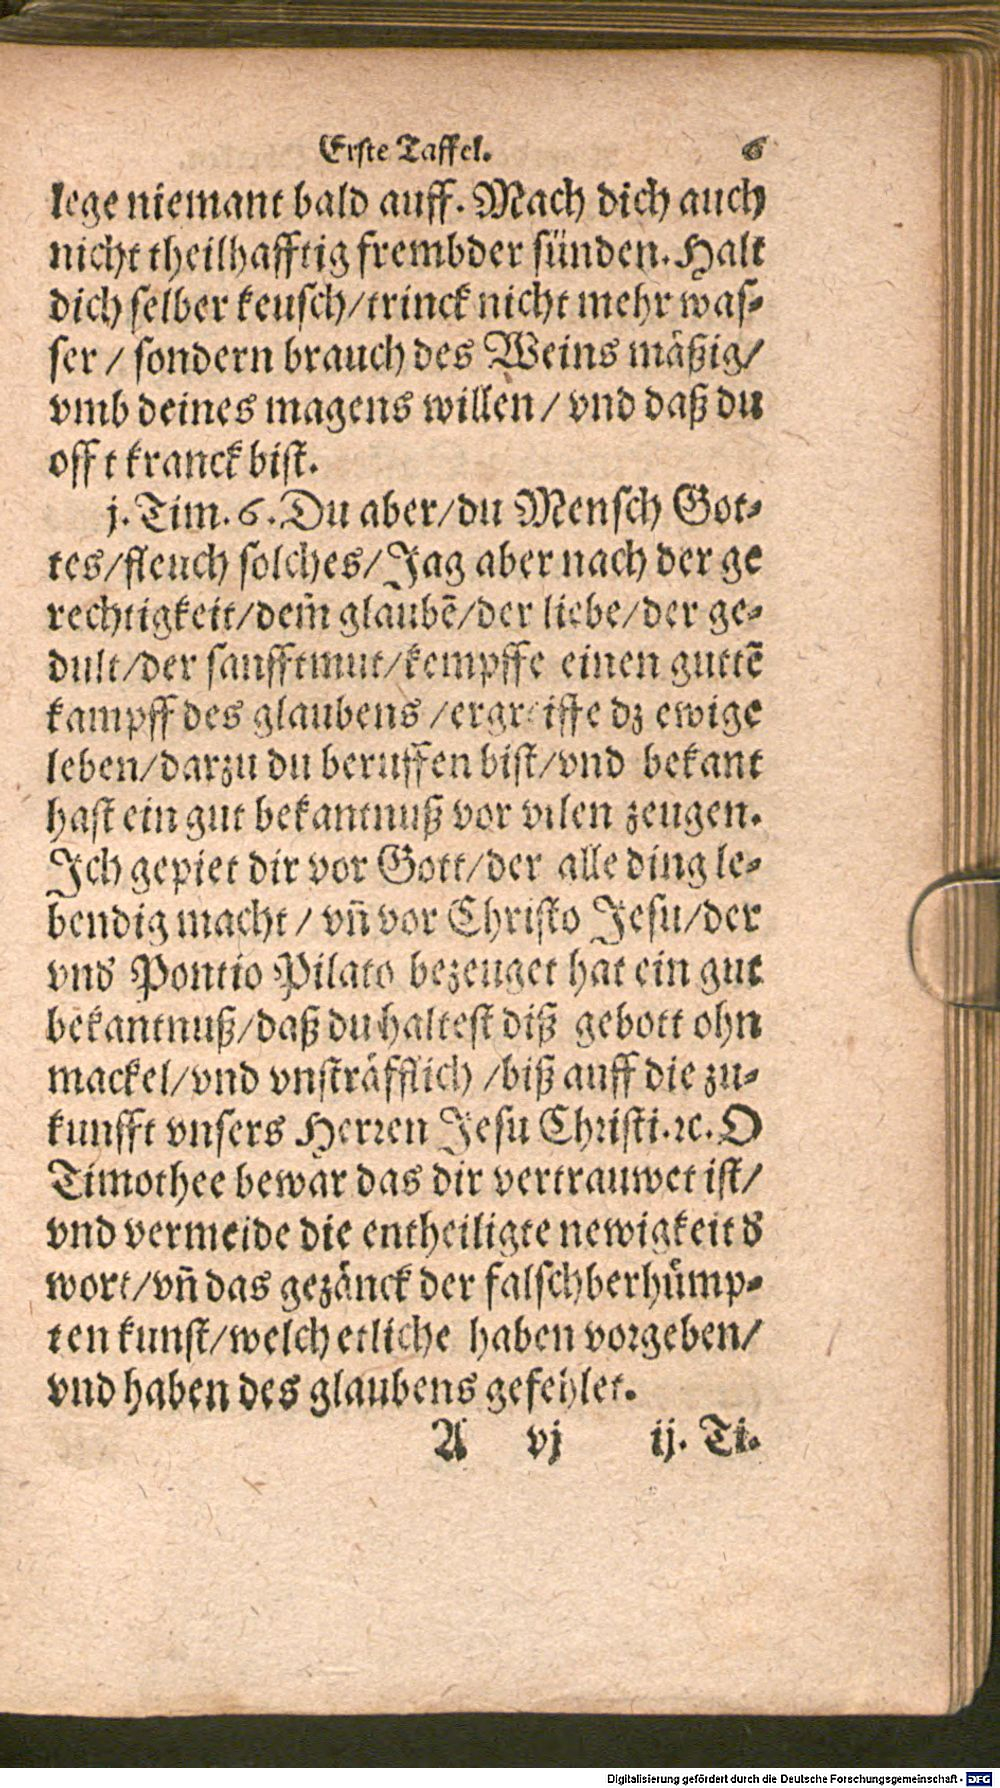 Erste Taffel. 6
lege niemant bald auff. Mach dich auch
nicht theilhafftig frembder sünden. Halt
dich selber keusch/trinck nicht mehr was-
ser / sondern brauch des Weins mäßig/
vmb deines magens willen / vnd daß du
offt kranck bist.
j. Tim. 6. Du aber/du Mensch Got-
tes/fleuch solches/Jag aber nach der ge
rechtigkeit/dem̃ glaubẽ/der liebe/der ge-
dult/der sanfftmut/kempffe einen guttẽ
kampff des glaubens /ergreiffe dz ewige
leben/darzu du beruffen bist/vnd bekant
hast ein gut bekantnuß vor vilen zeugen.
Ich gepiet dir vor Gott/der alle ding le-
bendig macht / vñ vor Christo Jesu/der
vnd Pontio Pilato bezeuget hat ein gut
bekantnuß/daß du haltest diß gebott ohn
mackel/vnd vnsträfflich /biß auff die zu-
kunfft vnsers Herren Jesu Christi.ꝛc. O
Timothee bewar das dir vertrauwet ist/
vnd vermeide die entheiligte newigkeit d
wort/vñ das gezänck der falschberhümp-
ten kunst/welch etliche haben vorgeben/
vnd haben des glaubens gefehlet.
A vj ij. Ti.
Digitalisierung gefördert durch die Deutsche Forschungsgemeinschaft - DFG